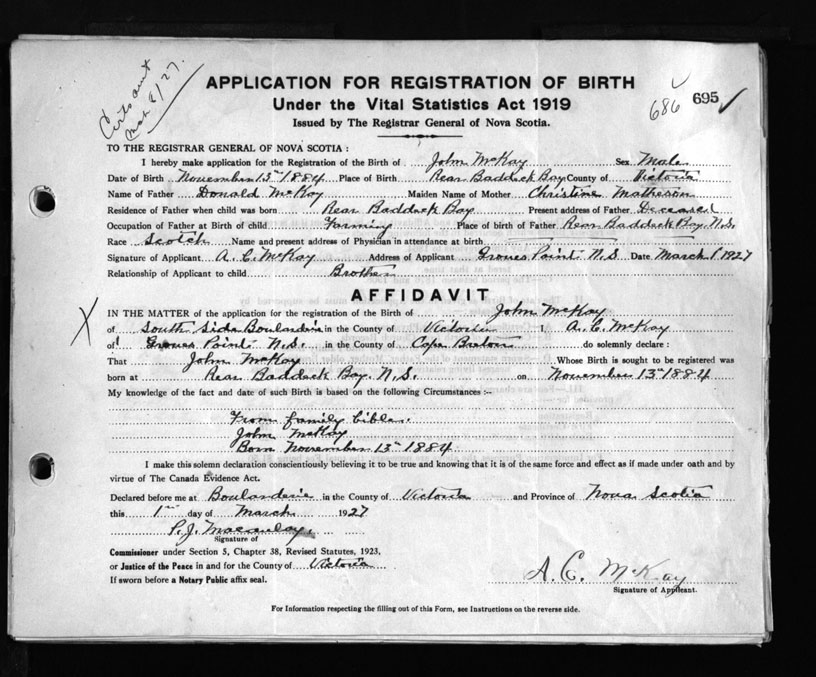 Certs sent
Mar 8/27.
APPLICATION FOR REGISTRATION OF BIRTH
Under the Vital Statistics Act 1919
686 695
Issued by The Registrar General of Nova Scotia.
TO THE REGISTRAR GENERAL OF NOVA SCOTIA :
I hereby make application for the Registration of the Birth of John McKay Sex Male
Date of Birth November 13th 1884 Place of Birth Rear Baddeck Bay County of Victoria
Name of Father Donald McKay Maiden Name of Mother Christine Matheson
Residence of Father when child was born Rear Baddeck Bay Present address of Father Deceased
Occupation of Father at Birth of child Farming Place of birth of Father Rear Baddeck Bay, N.S.
Race Scotch Name and present address of Physician in attendance at birth
Signature of Applicant A. C. McKay Address of Applicant Groves Point N.S Date March 1 1927
Relationship of Applicant to child Brother
AFFIDAVIT
IN THE MATTER of the application for the registration of the Birth of John McKay
of South Side Boularderie in the County of Victoria I, A. C. McKay
of Groves Point N.S. in the County of Cape Breton do solemnly declare :
That John McKay Whose Birth is sought to be registered was
born at Rear Baddeck Bay. N.S. on November 13th 1884
My knowledge of the fact and date of such Birth is based on the following Circumstances :-
From family bible.
John McKay
Born November 13th 1884.
I make this solemn declaration conscientiously believing it to be true and knowing that it is of the same force and effect as if made under oath and by
virtue of The Canada Evidence Act.
Declared before me at Boularderie in the County of Victoria and Province of Nova Scotia
this 1st day of March 1927
P. J. Macaulay.
Signature of
Commissioner under Section 5, Chapter 38, Revised Statutes, 1923,
or Justice of the Peace in and for the County of Victoria
If sworn before a Notary Public affix seal.
A. C. McKay
Signature of Applicant.
For Information respecting the filling out of this Form, see Instructions on the reverse side.